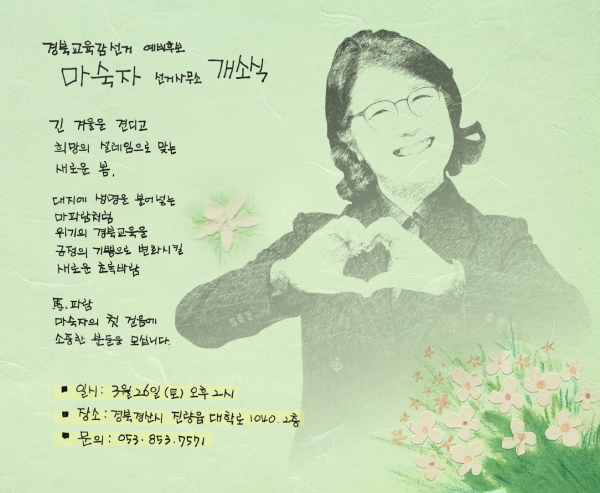 경북교육감선거 예비후보
마숙자 선거사무소 개소식
긴 겨울을 견디고
희망의 설레임으로 맞는
새로운 봄,
대지에 생명을 불어넣는
마파람처럼
위기의 경북교육을
긍정의 기쁨으로 변화시킬
새로운 초록바람
馬.파람
마숙자의 첫 걸음에
소중한 분들을 모십니다.
▪ 일시: 3월 26일 (토) 오후 2시
▪ 장소: 경북경산시 진량읍 대학로 1040. 2층
▪ 문의: 053.853.7571